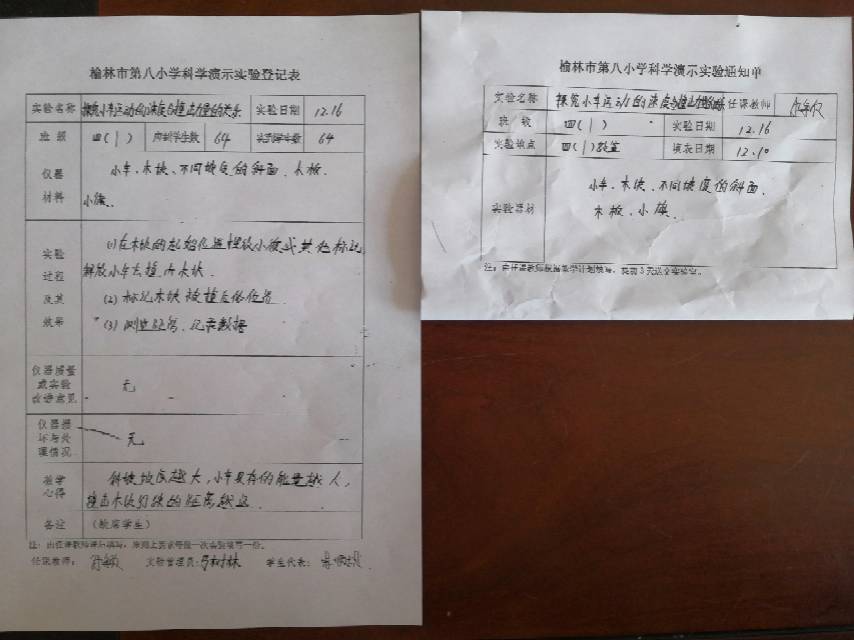 榆林市第八小学科学演示实验登记表
实验名称 探究小车运动的速度与撞击力量的关系 实验日期 12.16
班级 四(1) 应到学生数 64 实到学生数 64
仪器材料 小车、木块、不同坡度的斜面、木板、
小旗、
实验过程及其效果 (1)在木块的起始位置摆放小旗或其他标记,
解放小车去撞击木块.
(2)标记木块被撞后的位置.
(3)测量距离、记录数据
仪器质量或实验改进意见 无
仪器损坏与处理情况 无
教学心得 斜坡坡度越大,小车具有的能量越大,
撞击木块引块的距离越远.
备注 (缺席学生)
注:由任课教师课后填写,原则上要求每做一次实验填写一份。
任课教师: 实验管理员: 学生代表:
榆林市第八小学科学演示实验通知单
实验名称 探究小车运动的速度与撞击力量的 任课教师
班级 四(1) 实验日期 12.16
实验地点 四(1)教室 填表日期 12.10
实验器材 小车、木块、不同坡度的斜面、
木板、小旗、
注:由任课教师根据教学计划填写,提前3天送交实验室。